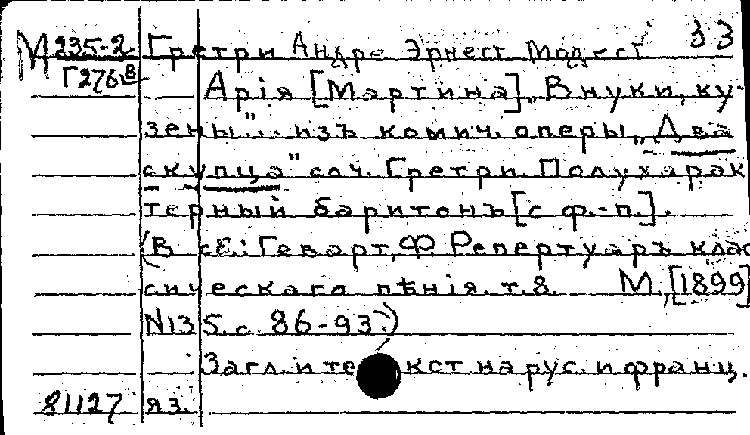 М 235-2 Гретри Андре Эрнест Модест 33
Г276в Арiя [Мартина] „Внуки, ку-
зены"... изъ комич. оперы „Два
скупца" соч. Гретри. Полухарак
терный баритонъ [с ф.-п.].
(В сб.: Геварт, Ф Репертуаръ клас
сическаго пѣнiя. т. 8. М., [1899]
N135. с. 86-93.)
Загл. и текст на рус. и франц.
81127 яз.